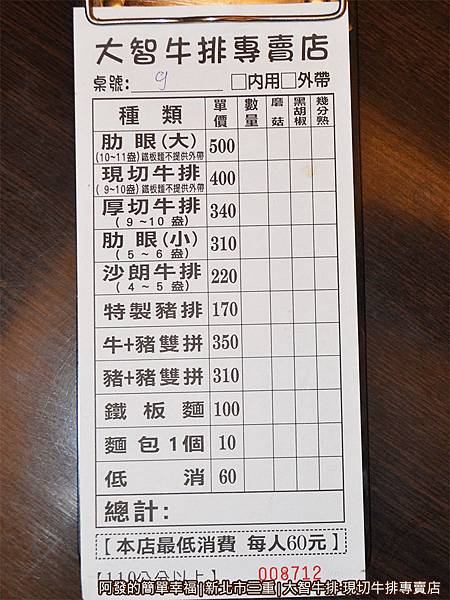 大智牛排專賣店
桌號: 9 □內用□外帶
種類 單價 數量 磨菇 黑胡椒 幾分熟
肋眼(大) 500
(10~11盎)鐵板麵不提供外帶
現切牛排 400
(9~10盎)鐵板麵不提供外帶
厚切牛排 340
(9~10盎)
肋眼(小) 310
(5~6盎)
沙朗牛排 220
(4~5盎)
特製豬排 170
牛+豬雙拼 350
豬+豬雙拼 310
鐵板麵 100
麵包1個 10
低消 60
總計:
[本店最低消費 每人60元]
【110公分以上】 008712
阿發的簡單幸福|新北市三重|大智牛排·現切牛排專賣店